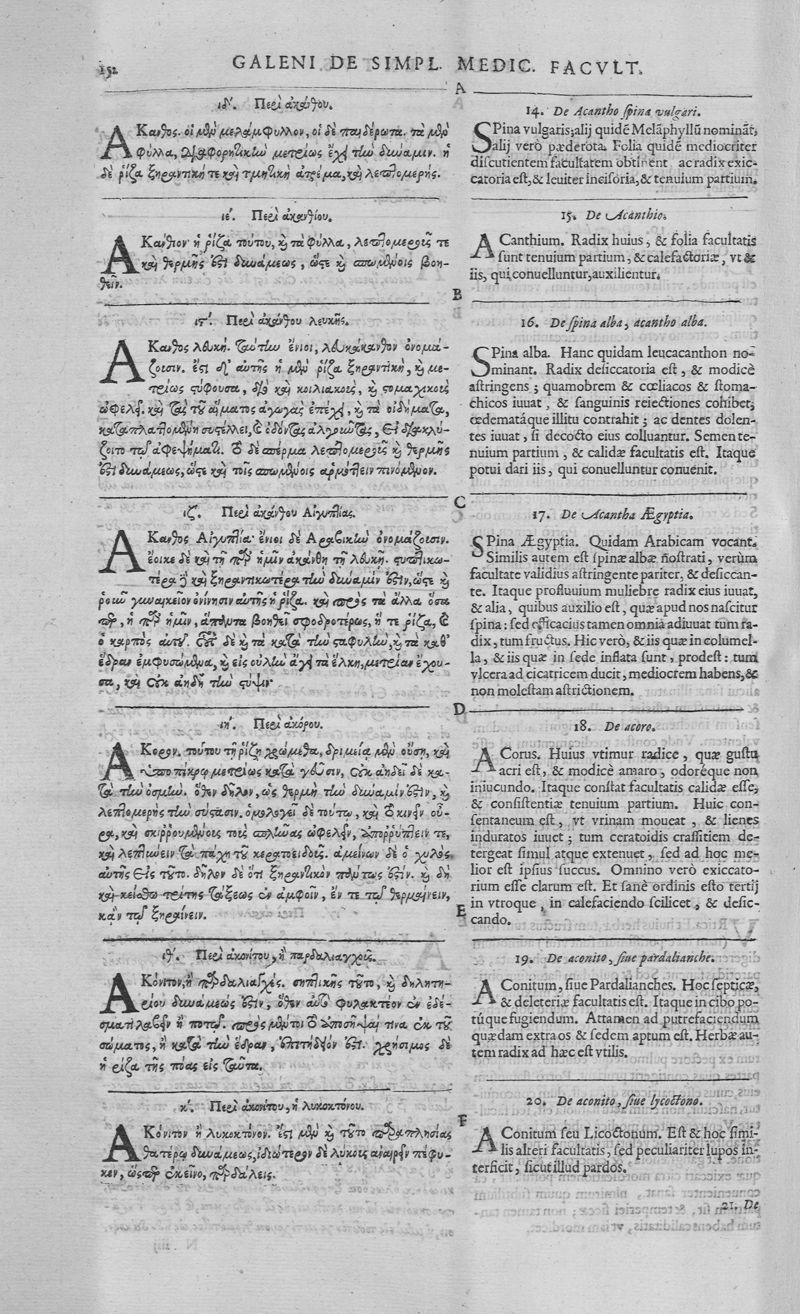 152 GALENI DE SIMPL. MEDIC. FACVLT.
A
ιδ'. Περὶ ἀκάνθου.
ΑΚανθος. οἱ μὲν μελάμφυλλον, οἱ δὲ παιδέρωτα. τὰ μὲν
φύλλα, διαφορητικὴν μετρίως ἔχει τὴν δύναμιν. ἡ
δὲ ῥίζα ξηραντική τε καὶ τμητικὴ ἀτρέμα, καὶ λεπτομερής.
ιε'. Περὶ ἀκανθίου.
ΑΚάνθιον· ἡ ῥίζα τούτου, καὶ τὰ φύλλα, λεπτομεροῦς τε
καὶ θερμῆς ἐστὶ δυνάμεως, ὥστε καὶ σπωμένοις βοη-
θεῖν.
B
ιϛ'. Περὶ ἀκάνθου λευκῆς.
ΑΚανθος λευκή. ταύτην ἔνιοι, λευκάκανθον ὀνομά-
ζουσιν. ἔστι δ' αὐτῆς ἡ μὲν ῥίζα ξηραντικὴ, καὶ με-
τρίως στύφουσα, διὸ καὶ κοιλιακοῖς, καὶ στομαχικοῖς
ὠφελεῖ. καὶ τὰς τοῦ αἵματος ἀγωγὰς ἐπέχει, καὶ τὰ οἰδήματα,
καταπλαττομένη συστέλλει, καὶ ὀδόντας ἀλγοῦντας, εἰ διακλύ-
ζοιτο τῷ ἀφεψήματι. τὸ δὲ σπέρμα λεπτομεροῦς καὶ θερμῆς
ἐστὶ δυνάμεως, ὥστε καὶ τοῖς σπωμένοις ἁρμόττειν πινόμενον.
C
ιζ'. Περὶ ἀκάνθου Αἰγυπτίας.
ΑΚανθος Αἰγυπτία· ἔνιοι δὲ Ἀραβικὴν ὀνομάζουσιν.
ἔοικε δὲ καὶ τῇ παρ' ἡμῖν ἀκάνθῃ τῇ λευκῇ. στυπτικω-
τέρα καὶ ξηραντικωτέρα τὴν δύναμίν ἐστιν, ὥστε καὶ
ῥοῦν γυναικεῖον ὀνίνησιν αὐτῆς ἡ ῥίζα. καὶ πρὸς τὰ ἄλλα ὅσα
περ, ἡ παρ' ἡμῖν, ἅπαντα βοηθεῖ σφοδροτέρως, ἥ τε ῥίζα, καὶ
ὁ καρπὸς αὐτοῦ. οὗτος δὲ καὶ τὰ κατὰ τὴν σταφυλὴν, καὶ τὰ καθ'
ἕδραν ἐμφυσώμενα, καὶ εἰς οὐλὴν ἄγει τὰ ἕλκη, μετρίαν ἔχου-
σα, καὶ οὐκ ἀηδῆ τὴν στύψιν·
D
ιη'. Περὶ ἀκόρου.
ΑΚορον. τούτου τῇ ῥίζῃ χρώμεθα, δριμεία μὲν οὔσῃ, καὶ
ὑποπίκρῳ μετρίως κατὰ γεῦσιν, οὐκ ἀηδεῖ δὲ κα-
τὰ τὴν ὀσμήν. ὅθεν δῆλον, ὡς θερμὴ τὴν δύναμίν ἐστιν, καὶ
λεπτομερὴς τὴν σύστασιν. ὁμολογεῖ δὲ τούτῳ, καὶ τὸ κινεῖν οὖ-
ρα, καὶ σκιῤῥουμένους τοὺς σπλῆνας ὠφελεῖν, ὑποῤῥύπτειν τε,
καὶ λεπτύνειν τὰ πάχη τοῦ κερατοειδοῦς. ἀμείνων δὲ ὁ χυλὸς,
αὐτῆς εἰς τοῦτο. δῆλον δὲ ὅτι ξηραντικὸν πάντως ἐστίν. καὶ δὴ
καὶ κείσθω τρίτης τάξεως ἐν ἀμφοῖν, ἔν τε τῷ θερμαίνειν,
κᾀν τῷ ξηραίνειν.
E
ιθ'. Περὶ ἀκονίτου, ἢ παρδαλιαγχοῦς.
ΑΚόνιτον, ἢ παρδαλιαγχές. σηπτικῆς τοῦτο, καὶ δηλητη-
ρίου δυνάμεώς ἐστιν, ὅθεν αὐτὸ φυλακτέον ἐν ἐδέ-
σματι λαβεῖν ἢ ποτῷ. πρὸς μέντοι τὸ ὑποσῆψαί τινα ἐκτὸς τοῦ
σώματος, ἢ κατὰ τὴν ἕδραν, ἐπιτήδειόν ἐστι. χρήσιμος δὲ
ἡ ῥίζα τῆς πόας εἰς ταῦτα.
κ'. Περὶ ἀκονίτου, ἢ λυκοκτόνου.
F
ΑΚόνιτον ἢ λυκοκτόνον. ἔστι μὲν καὶ τοῦτο παραπλησίας
θατέρῳ δυνάμεως, ἰδιώτερον δὲ λύκους ἀναιρεῖν πέφυ-
κεν, ὥσπερ ἐκεῖνο, παρδάλεις.
14. De Acantho spina vulgari.
SPina vulgaris; alij quidē Melāphyllū nomināt,
alij verò pæderota. Folia quidē mediocriter
discutientem facultatem obtinent ac radix exic-
catoria est, & leuiter incisoria, & tenuium partium.
15. De Acanthio.
ACanthium. Radix huius, & folia facultatis
sunt tenuium partium, & calefactoriæ, vt &
iis, qui conuelluntur, auxilientur.
16. De spina alba, acantho alba.
SPina alba. Hanc quidam leucacanthon no-
minant. Radix desiccatoria est, & modicè
astringens; quamobrem & cœliacos & stoma-
chicos iuuat, & sanguinis reiectiones cohibet,
œdematáque illitu contrahit; ac dentes dolen-
tes iuuat, si decocto eius colluantur. Semen te-
nuium partium, & calidæ facultatis est. Itaque
potui dari iis, qui conuelluntur conuenit.
17. De Acantha Ægyptia.
SPina Ægyptia. Quidam Arabicam vocant.
Similis autem est spinæ albæ nostrati, verùm
facultate validius astringente pariter, & desiccan-
te. Itaque profluuium muliebre radix eius iuuat,
& alia, quibus auxilio est, quæ apud nos nascitur
spina: sed efficacius tamen omnia adiuuat tum ra-
dix, tum fructus. Hic verò, & iis quæ in columel-
la, & iis quæ in sede inflata sunt, prodest: tum
vlcera ad cicatricem ducit, mediocrem habens, &
non molestam astrictionem.
18. De acoro.
ACorus. Huius vtimur radice, quæ gustu
acri est, & modicè amaro, odoréque non
iniucundo. Itaque constat facultatis calidæ esse,
& consistentiæ tenuium partium. Huic con-
sentaneum est, vt vrinam moueat, & lienes
induratos iuuet; tum ceratoidis crassitiem de-
tergeat simul atque extenuet, sed ad hoc me-
lior est ipsius succus. Omnino verò exiccato-
rium esse clarum est. Et sanè ordinis esto tertij
in vtroque, in calefaciendo scilicet, & desic-
cando.
19. De aconito, siue pardalianche.
AConitum, siue Pardalianches. Hoc septicæ,
& deleteriæ facultatis est. Itaque in cibo po-
túque fugiendum. Attamen ad putrefaciendum
quædam extra os & sedem aptum est. Herbæ au-
tem radix ad hæc est vtilis.
20. De aconito, siue lycoctono.
AConitum seu Licoctonum. Est & hoc simi-
lis alteri facultatis, sed peculiariter lupos in-
terficit, sicut illud pardos.
21. De